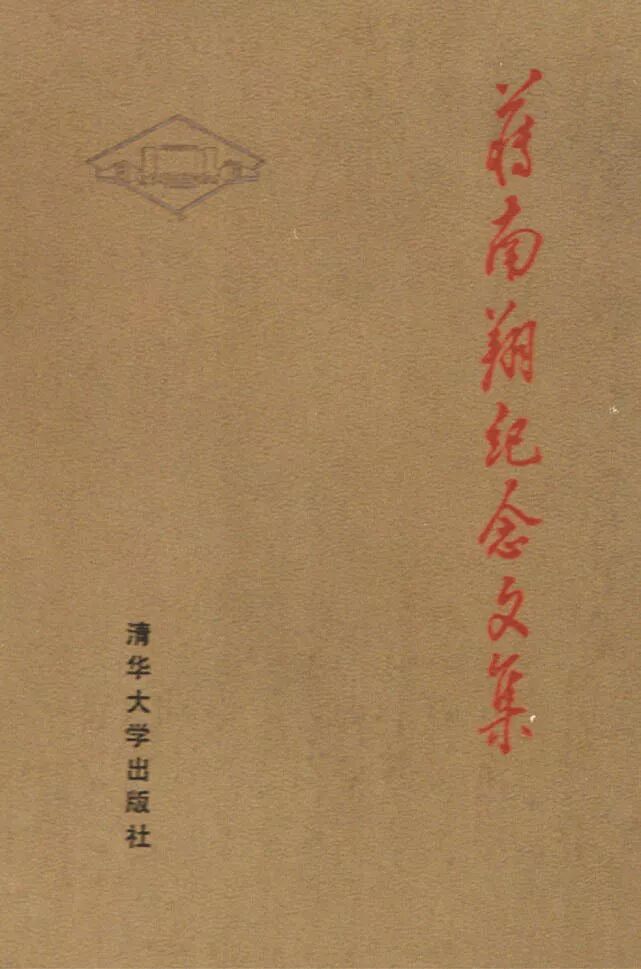 蒋南翔纪念文集
清华大学出版社